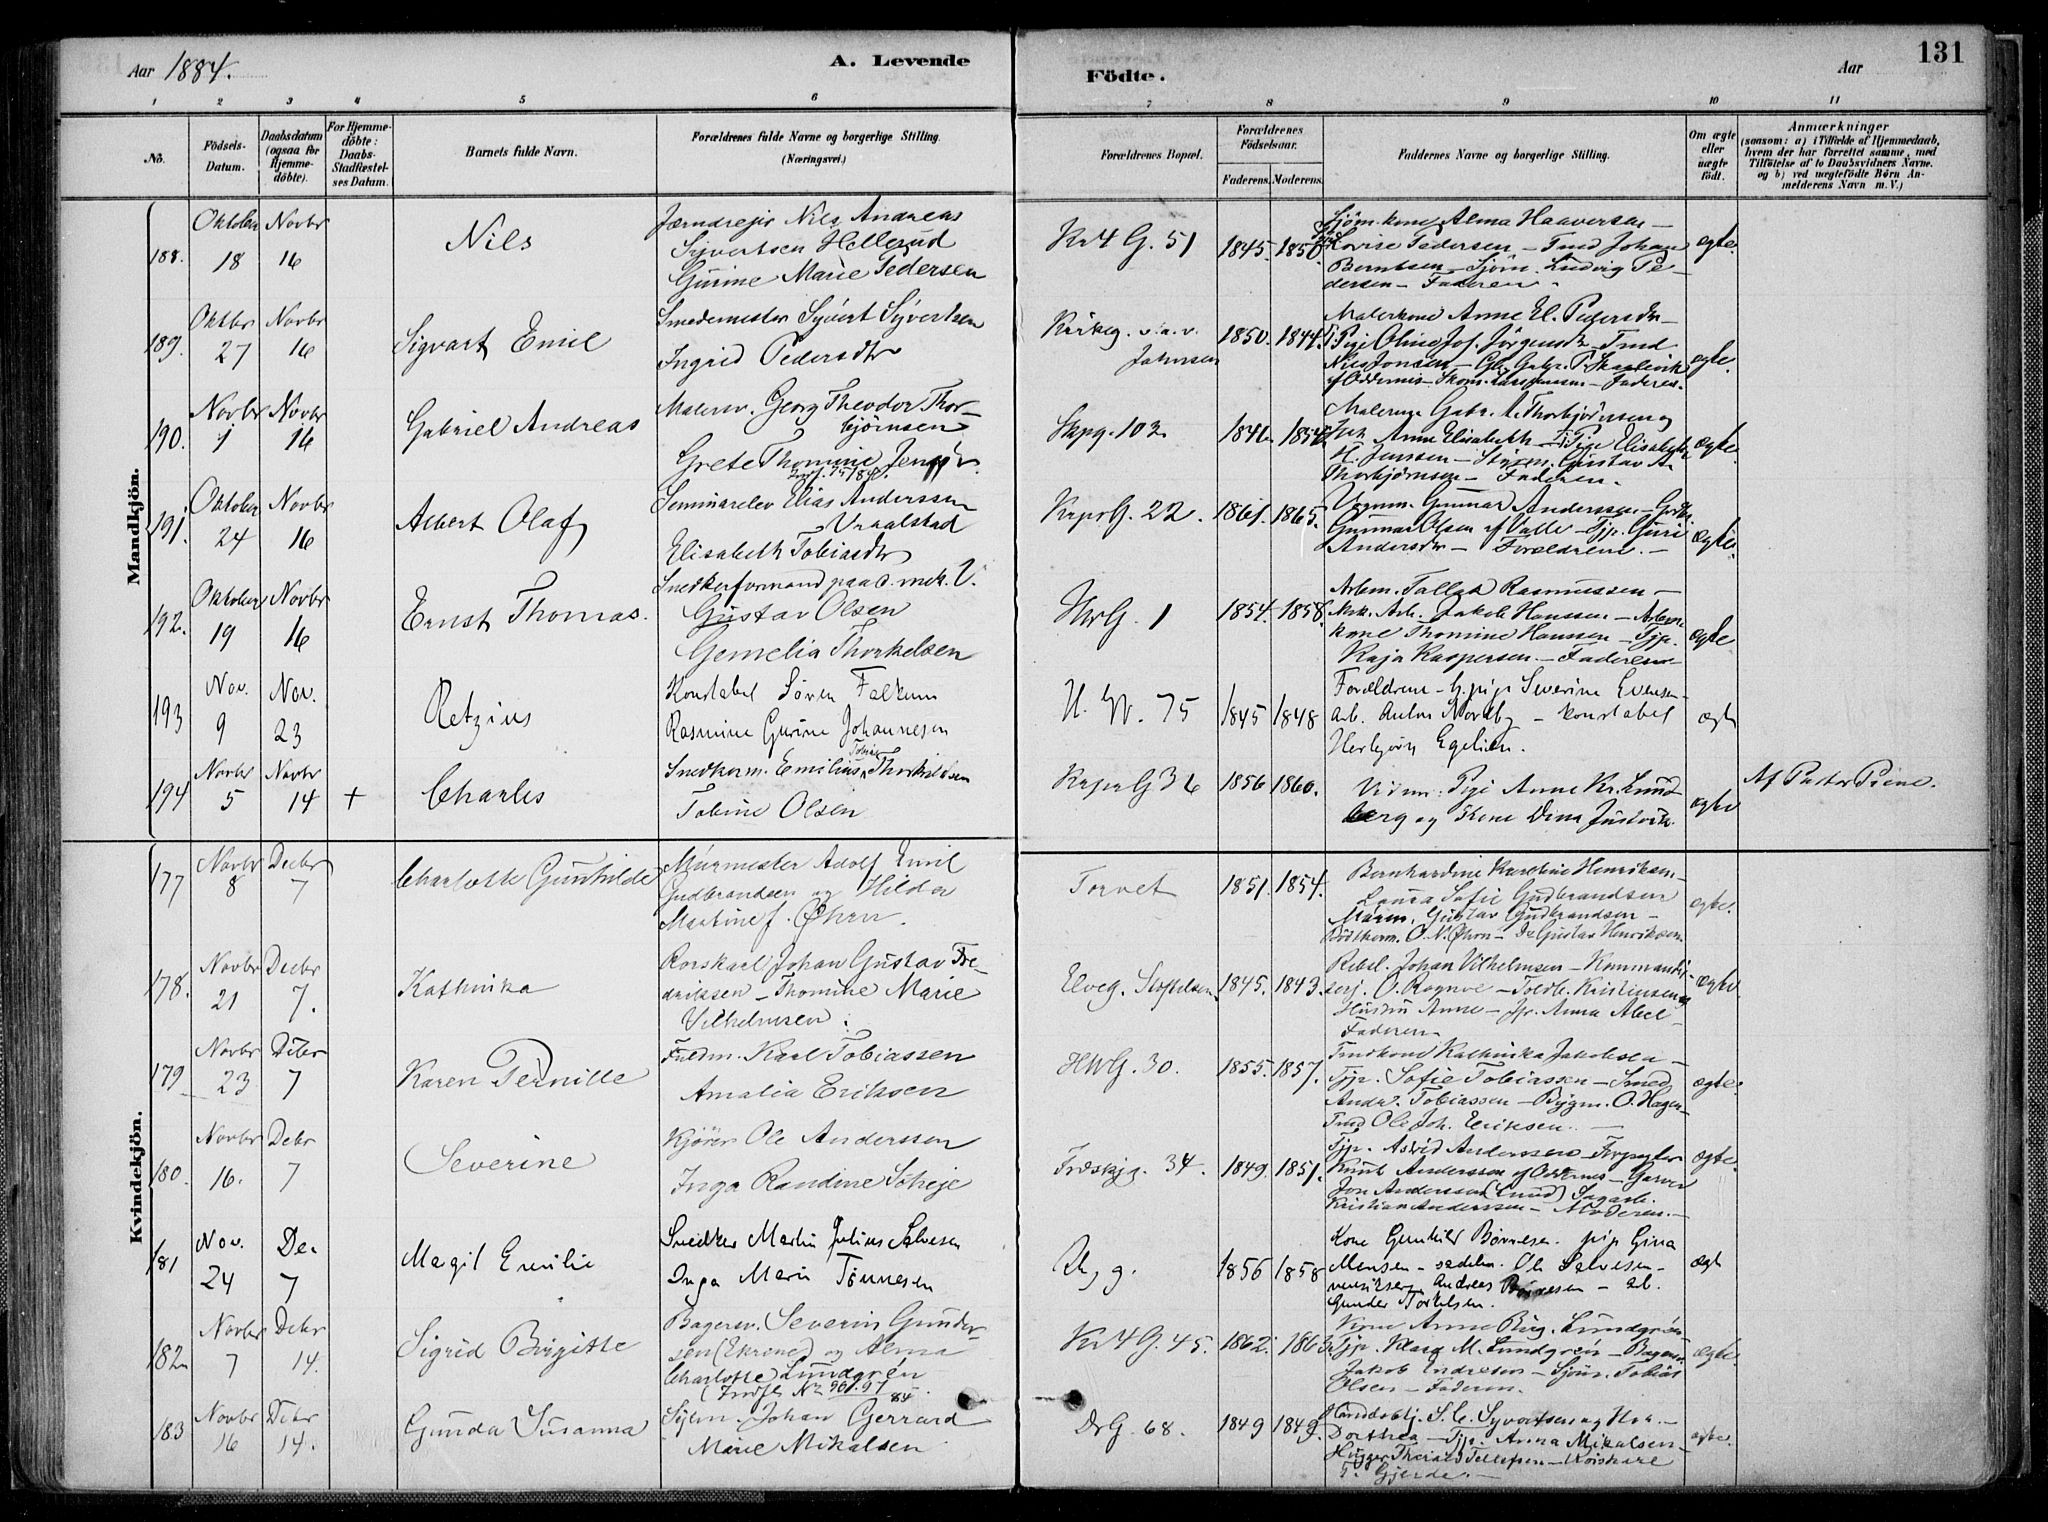 Aar 1884.
A. Levende
Födte.
Aar
131
1 2 3 4 5 6 7 8 9 10 11
No.
Födsels-Datum.
Daabsdatum (ogsaa för Hjemme-döbte).
For Hjemme-döbte: Daabs-Stadfæstel-ses Datum.
Barnets fulde Navn.
Forældrenes fulde Navne og borgerlige Stilling. (Næringsvei.)
Forældrenes Bopæl.
Forældrenes Födselsaar.
Faderens. Moderens.
Faddernes Navne og borgerlige Stilling.
Om ægte eller uægte født.
Anmærkninger
(saasom: a) i Tilfælde af Hjemmedaab, hvem der har forrettet samme, med Tilföielse af to Daabsvidners Navne, og b) ved uægtefödte Börn An-melderens Navn m. V.)
Mandkjön.
188. Oktober 18 Novbr 16 Nils
Nils Andreas
Syvertsen Hellesud
Gurine Marie Pedersen
Kr4 G. 51 1845. 1850
Sjöm. kone Alma Haaversen –
Lovise Pedersen – Tmd Johan
Berntsen – Sjöm. Ludvig Pe-
dersen – Faderen.
ægte.
189. Oktbr 27 Novbr 16 Sigvart Emil
Smedemester Syvert Syvertsen
Ingrid Pedersdtr
Kirkeg. v. a. v. Johnsen 1850. 1844.
Malerkone Anne El. Pedersdtr –
Pige Oline Jos. Jörgensdtr – Tmd
Nils Jonsen – Faderen.
ægte.
190. Novbr 1 Novbr 16 Gabriel Andreas
Malersv. Georg Theodor Thor-
björnsen
Grete Thomine
Skpg. 102
Thorbjörnsen og
Anne Elisabeth – Pige Elisabeth
H. Jensen – Styrm. Gustav A.
Thorbjörnsen – Faderen.
ægte.
191. Oktober 24 Novbr 16 Albert Olaf
Seminarelev Elias Anderssen
Uraalstad
Elisabeth Tobiasdtr
KrpsG. 22. 1861. 1865.
Ungm. Gunnar Anderssen – Gdbr.
Gunnar Olsen af Valle – Tjp. Guri
Andersdtr – Forældrene. –
ægte.
192. Oktober 19 Novbr 16 Ernst Thomas.
Snedkerformand paa C. mek. V.
Gustav Olsen
Gemelia Thorkelsen
HrG. 1 1854. 1858.
Arbm. Tallak Rasmussen –
Mek. Arb. Jakob Hanssen – Arbm
kone Thomine Hanssen – Tjp.
Kaja Kaspersen – Faderen
ægte
193 Nov. 9 Nov. 23 Retzius
Konstabel Sören Falkum
Rasmine Gurine Johannesen
H. W. 75 1845 1848
Forældrene – h. pige Severine Evensen –
arb. Anton Nordby – konstabel
Herbjörn Egelien.
ægt
194 Novbr 5 Novbr 14 + Charles
Snedkerm. Emilius Tobias Thorkildsen
Tobine Olsen
KrprG 36 1856 1860.
Vidner: Pige Anne Kr. Lund-
berg og Kone Dina Justvik.
ægte
Af Pastor Piene.
Kvindekjön.
177 Novbr 8 Decbr 7 Charlotte Gunhilde
Murmester Adolf Emil
Gudbrandsen og Hilda
Martine f. Öhrn.
Torvet 1851. 1854.
Bernhardine Karoline Henriksen –
Laura Sofie Gudbrandsen
Murm. Gustav Gudbrandsen –
Bödkerm. O. N. Öhrn – Gustav Henriksen.
ægte.
178. Novbr 21 Decbr 7. Kathinka
Rorskarl Johan Gustav Fre-
drikssen – Thomine Marie
Vilhelmsen.
Elveg. 1845. 1843.
Rebsl. Johan Vilhelmsen –
Toldb. Kristensen og
Hustru Anne – Jfr. Anna Abel –
Faderen –
ægte.
179 Novbr 23 Debr 7 Karen Pernille
Karl Tobiassen
Amalia Eriksen
HWG. 30. 1855. 1857.
Tmdkone Kathinka Jakobsen –
Tjp. Sofie Tobiassen – Smed
Andr. Tobiassen – Bygm. O. Hagen –
Tmd Ole Joh. Eriksen. –
ægte
180. Novbr 16. Debr 7 Severine
Kjörer Ole Anderssen
Inga Randine Scheie
Fræskjg. 34. 1849. 1851.
Tjp. Astrid Anderssen –
Knut Anderssen af Oddernes – Garver
Jon Anderssen (Lund) Sagarb.
Kristian Anderssen – Moderen. –
ægte.
181 Nov. 24 De. 7 Magil Emilie
Snedker Martin Julius Salvesen
Inga Marie Tönnesen
1856 1858
Kone Gunhild Börresen. pige Gina
Monsen – sadelm. Ole Salvesen –
Andreas Börresen – arb.
Gunder Torkelsen.
ægt
182. Novbr 7 Debr 14. Sigrid Birgitte
Bagersv. Severin Gunder-
sen (Ekrene) og Alma
Charlotte Lundgrén
(Indfl. No 96/97 84.
Kr4G. 45. 1862. 1863
Kone Anne Birg. Lundgrén
Tjp. Klara M. Lundgrén – Bagersv.
Jakob Andresen – Sjöm. Tobias
Olsen – Faderen.
ægte.
183 Novbr 16 Debr 14. Gunda Susanna
Sjöm. Johan Gerrard
Marie Mikalsen
DrG. 68. 1849 1849.
Handelsbtj. S. C. Syvertsen og Hu. –
Dorthea – Tjp. Anna Mikalsen –
Hugger Therald Tellefsen –
T. Gjerde. –
ægte.